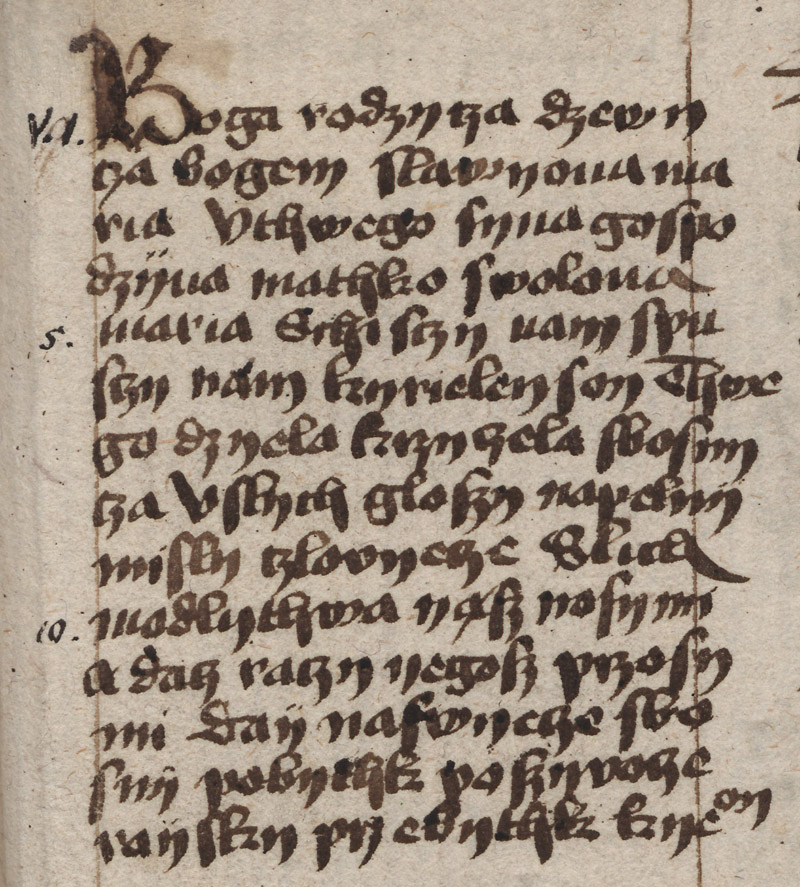 Va. Boga rodzycza dzewy
cza bogem slawyona ma
ria Vthwego syna gospo
dzyna mathko swolona
5. maria Schisczy nam spu
sczy nam kyrieleyson Thwe
go dzyela krzyczela sbosyy
cza Vslych glossy napelny
misly czlowyecze Slich
10. modlythwa yøsz nosymi
a dacz raczy yegosz prosy
mi day naswyecze sbo
sny pobyth poszywocze
raysky przebyth kyeon